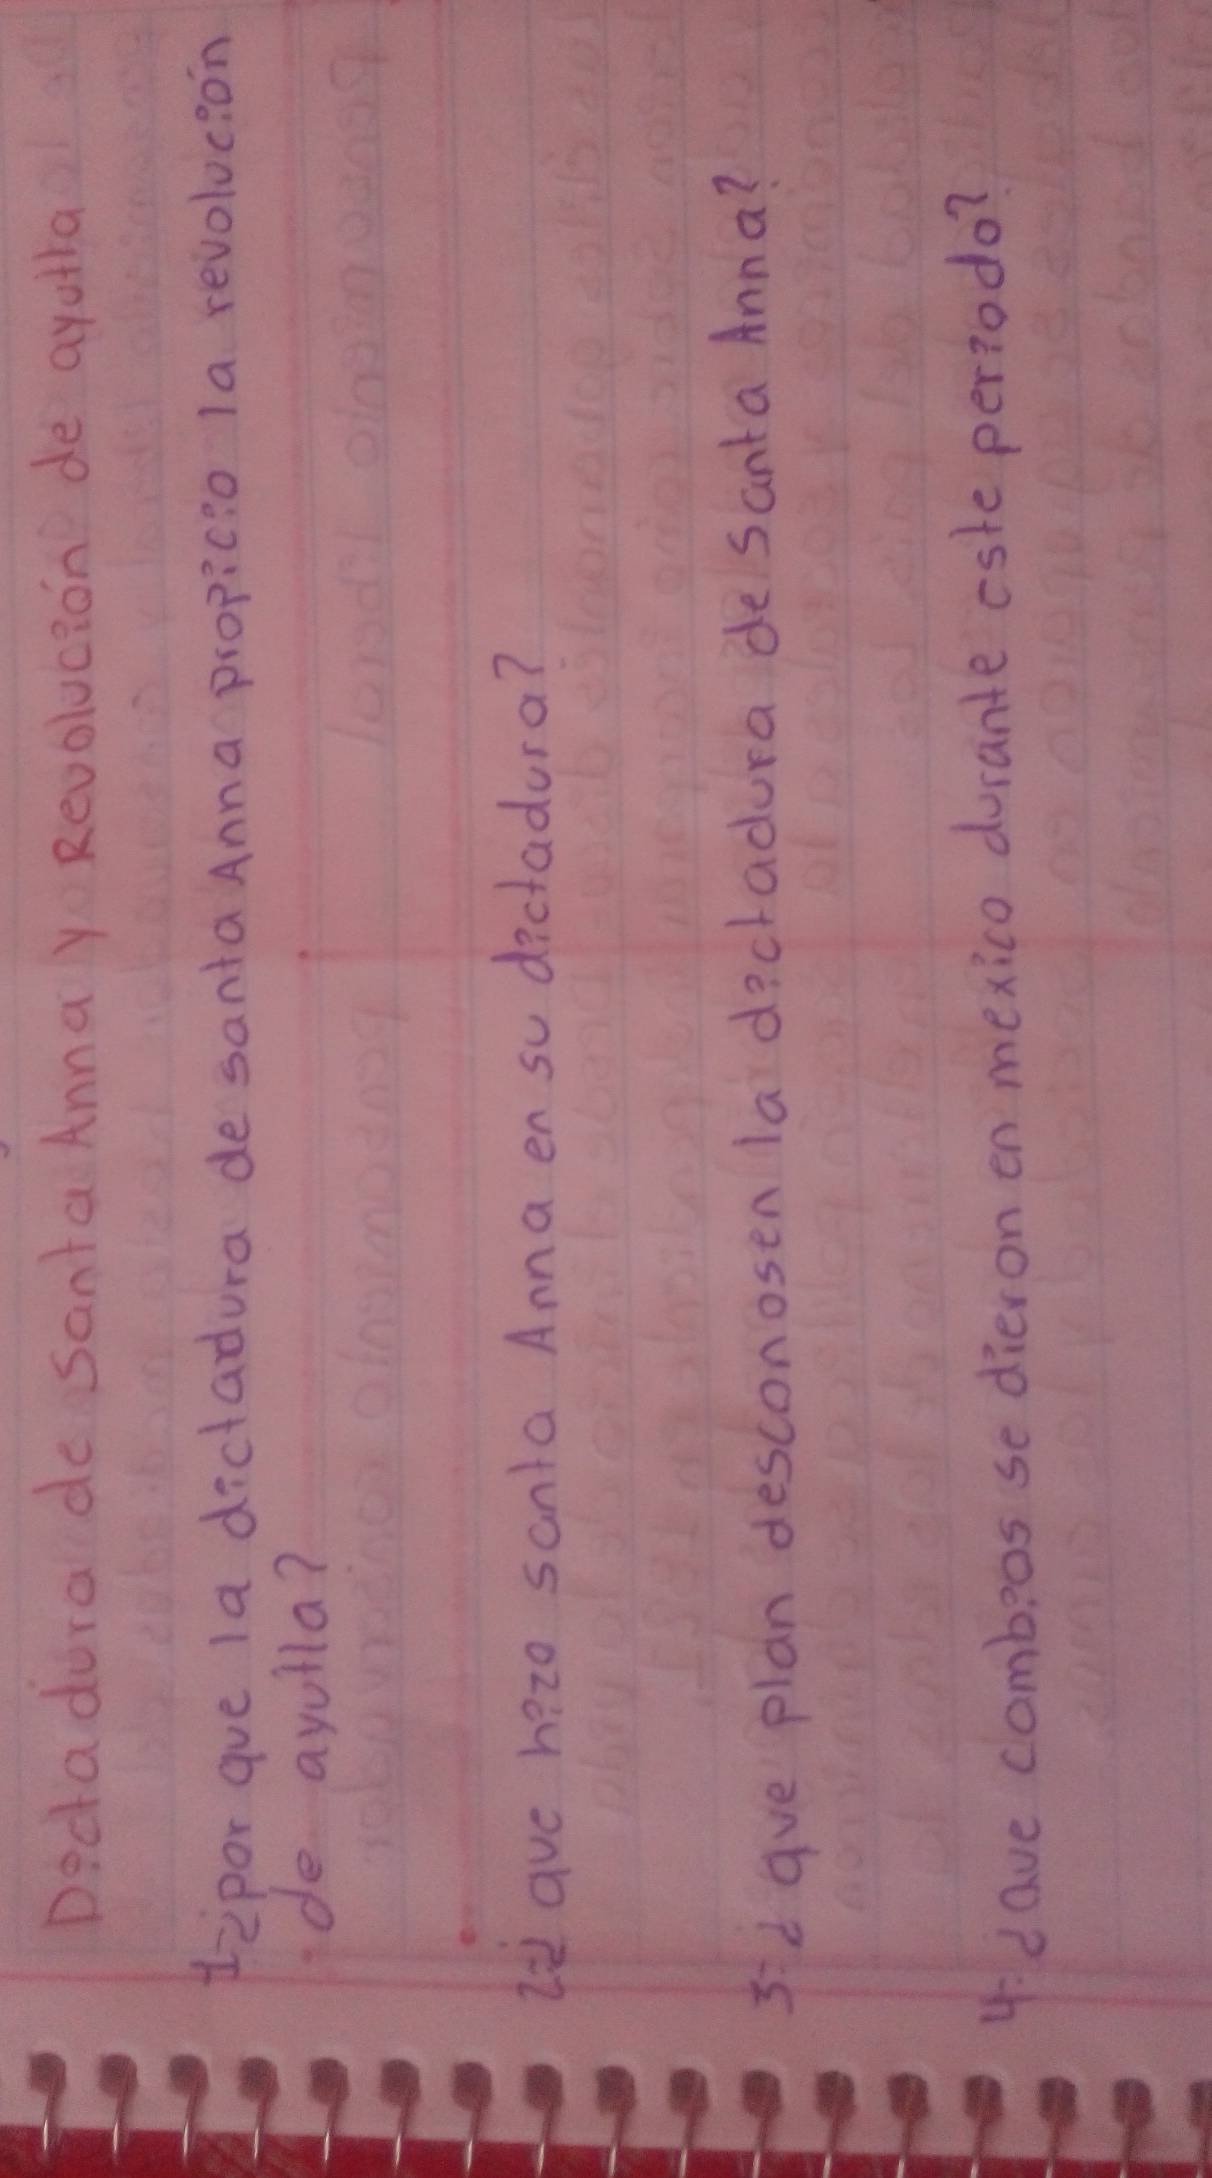 Dictadura de Santa Anna y Revolución de ayutla
1-¿por que la dictadura de santa Anna propicio la revolución
de ayutla?
2-¿que hizo santa Anna en su dictadura?
3-¿que plan desconosen la dictadura de santa Anna?
4-¿que combios se dieron en mexico durante este periodo?